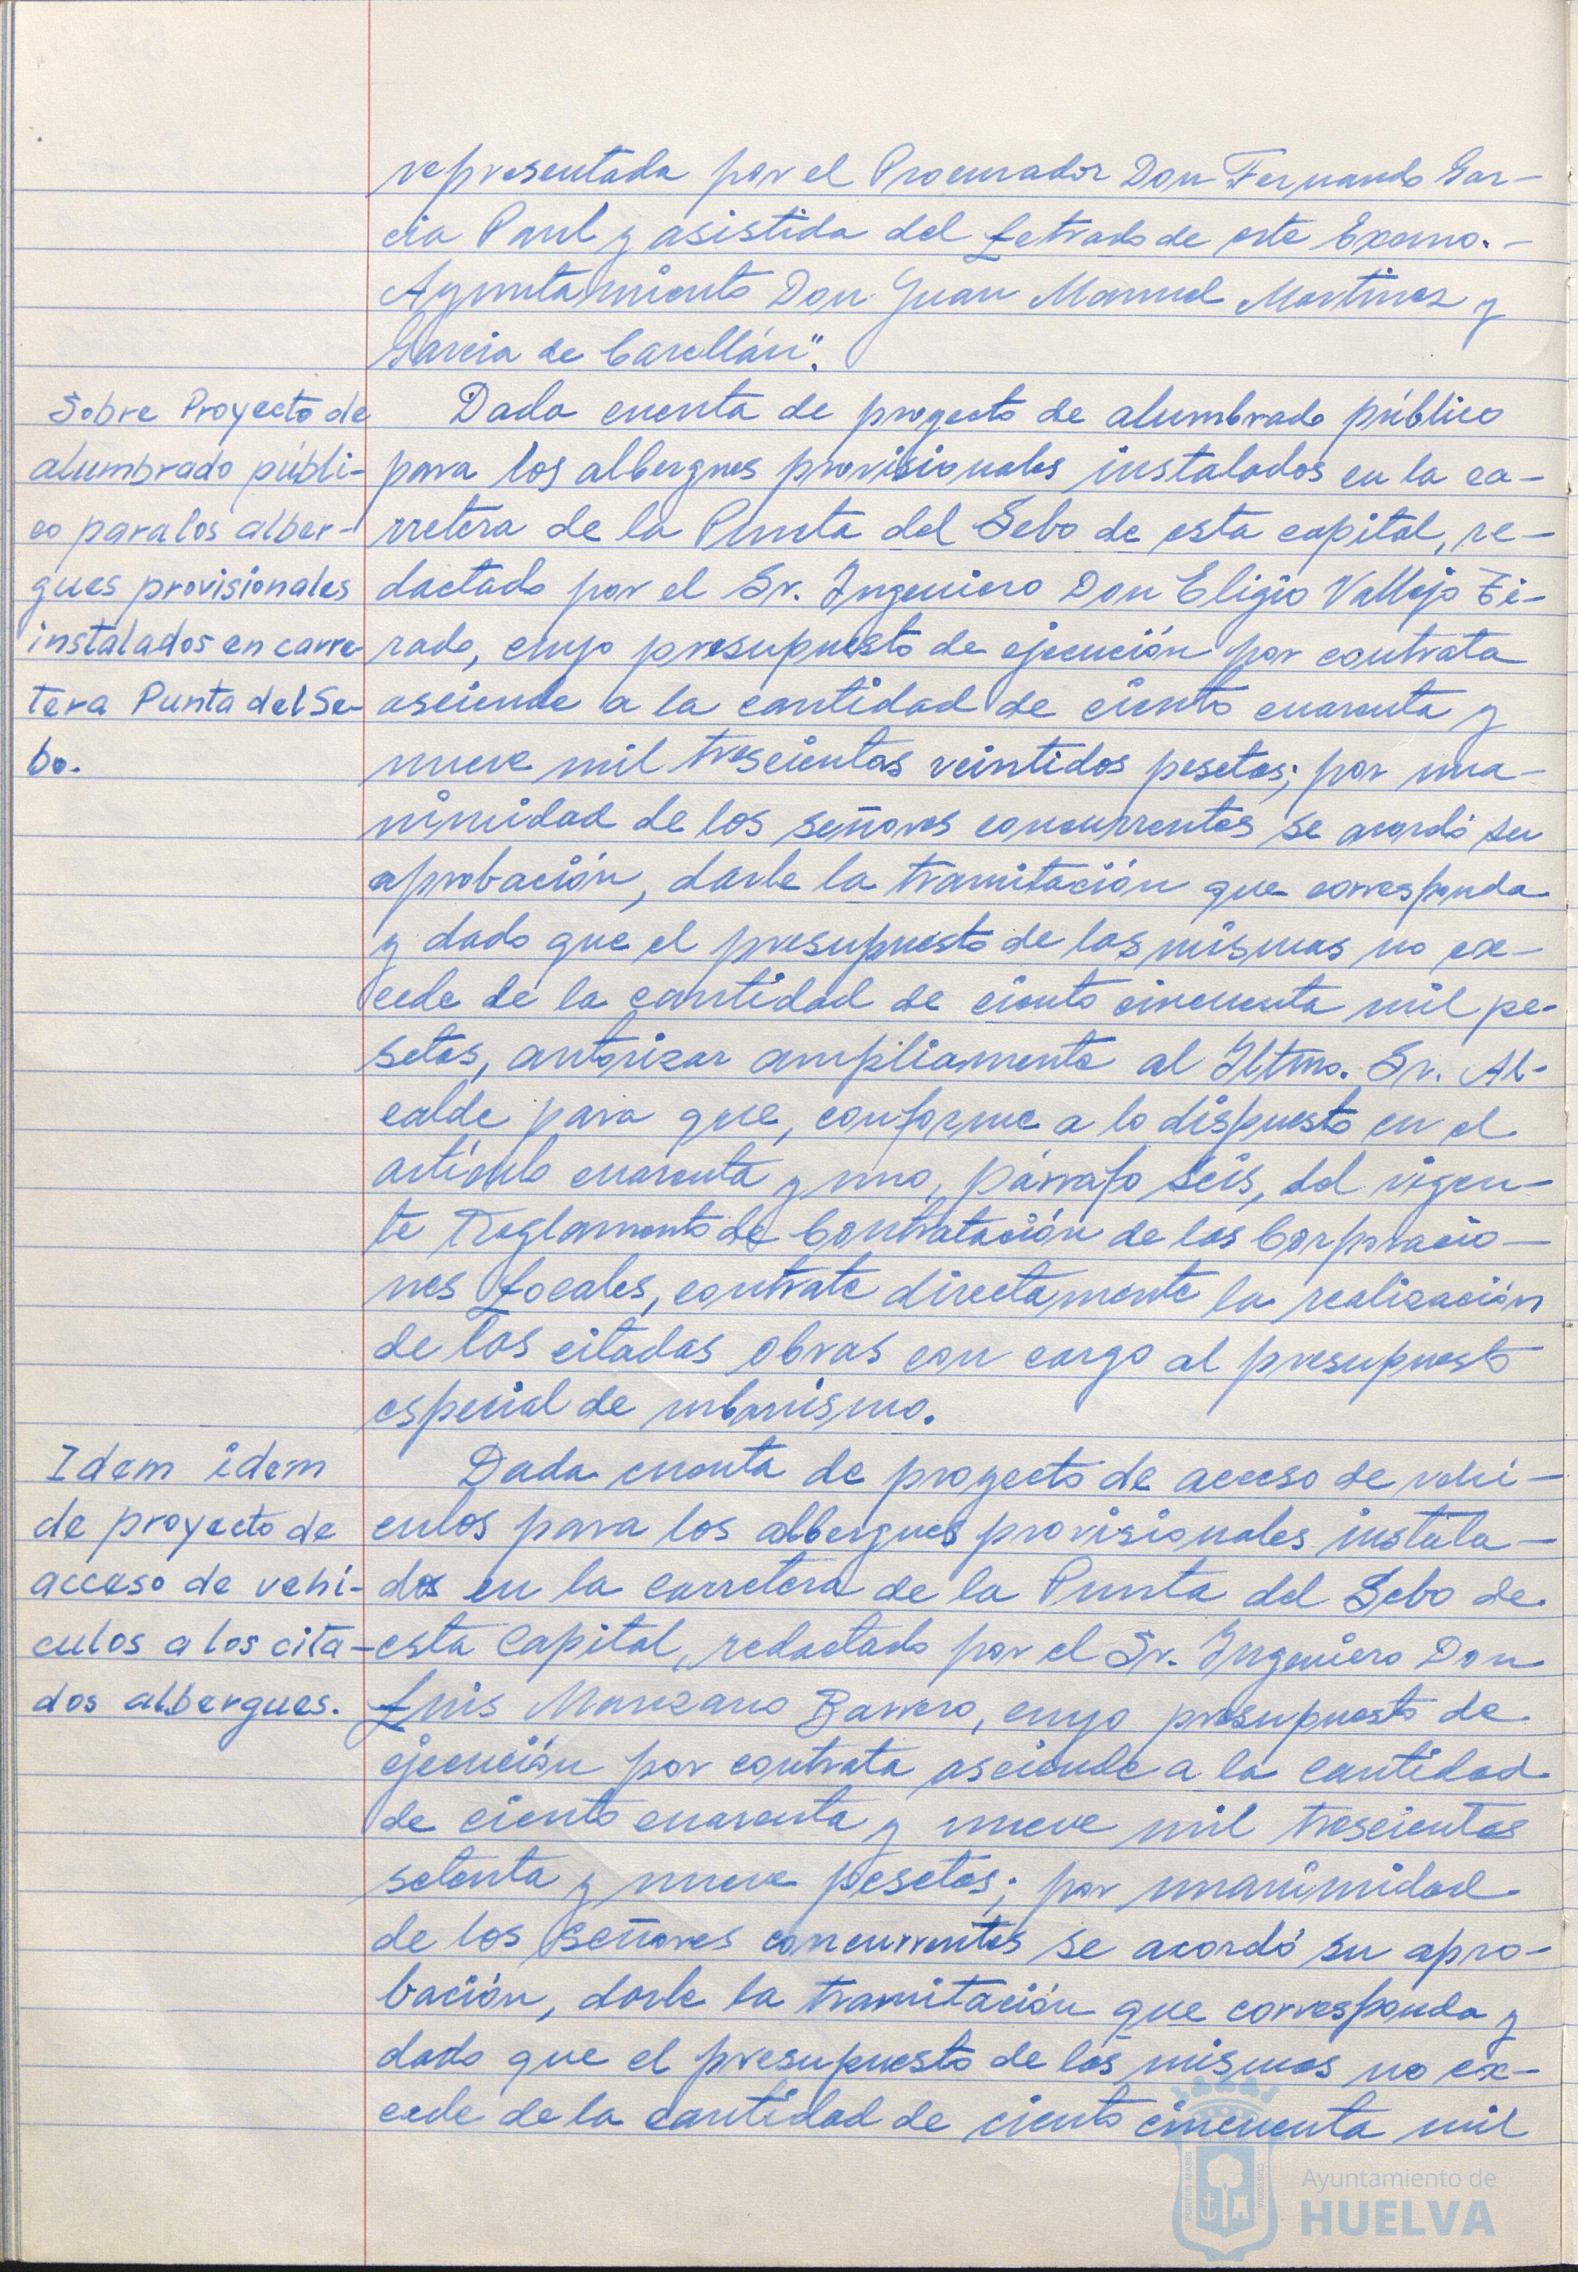 representada por el Procurador Don Fernando Gar-
cia Paul y asistida del Letrado de este Excmo.-
Ayuntamiento Don Juan Manuel Martinez y
Garcia de Carellán".
Sobre Proyecto de
alumbrado públi-
co para los alber-
gues provisionales
instalados en carre-
tera Punta del Se-
bo.
Dada cuenta de proyecto de alumbrado público
para los albergues provisionales instalados en la ca-
rretera de la Punta del Sebo de esta capital, re-
dactado por el Sr. Ingeniero Don Eligio Vallejo Ti-
rado, cuyo presupuesto de ejecución por contrata
asciende a la cantidad de ciento cuarenta y
nueve mil trescientas veintidos pesetas; por una-
nimidad de los señores concurrentes se acordó su
aprobación, darle la tramitación que corresponda
y dado que el presupuesto de las mismas no ex-
cede de la cantidad de ciento cincuenta mil pe-
setas, autorizar ampliamente al Iltmo. Sr. Al-
calde para que, conforme a lo dispuesto en el
artículo cuarenta y uno, párrafo seis, del vigen-
te Reglamento de Contratación de las Corporacio-
nes Locales, contrate directamente la realización
de las citadas obras con cargo al presupuesto
especial de urbanismo.
Idem idem
de proyecto de
acceso de vehí-
culos a los cita-
dos albergues.
Dada cuenta de proyecto de acceso de vehí-
culos para los albergues provisionales instala-
dos en la carretera de la Punta del Sebo de
esta Capital, redactado por el Sr. Ingeniero Don
Luis Manzano Barrero, cuyo presupuesto de
ejecución por contrata asciende a la cantidad
de ciento cuarenta y nueve mil trescientas
setenta y nueve pesetas; por unanimidad
de los señores concurrentes se acordó su apro-
bación, darle la tramitación que corresponda y
dado que el presupuesto de las mismas no ex-
cede de la cantidad de ciento cincuenta mil
PORTUS MARIS
CUSTODIA
Ayuntamiento de
HUELVA